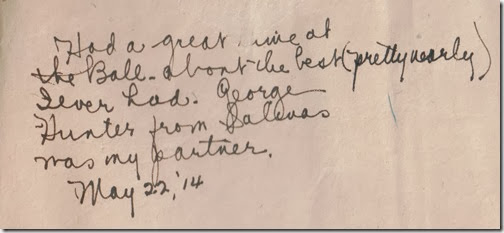 Had a great time at
the Ball - about the best (pretty nearly)
I ever had. George
Hunter from Salinas
was my partner.
May 22, '14